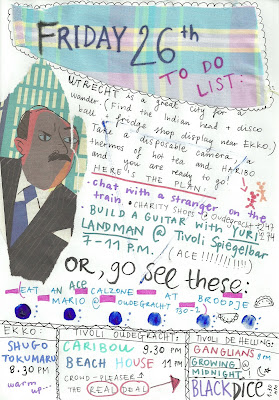 FRIDAY 26th
TO DO
LIST:
UTRECHT is a great city for a
wander. (Find the Indian head + disco
ball + frodge shop display near Ekko)
Take a disposable camera,
thermos of hot tea and HARIBO
and you are ready to go!
HERE'S THE PLAN:
• chat with a stranger on the
train. • CHARITY SHOPS @ OUDEGRACHT 247
274
• BUILD A GUITAR with YURI
LANDMAN @ Tivoli Spiegelbar
7-11 P.M. (ACE!!!!!!!!)
OR, go see these:
EAT AN ACE CALZONE AT BROODJE
MARIO @ OUDEGRACHT 130-1
EKKO:
SHUGO
TOKUMARU
8.30 PM
warm
up...
TIVOLI OUDEGRACHT:
CARIBOU 9.30 PM
BEACH HOUSE 11 PM
CROWD-PLEASERS
THE REAL DEAL
TIVOLI DE HELLING:
GANGLIANS 8PM
GROWING
MIDNIGHT!
BLACK DICE